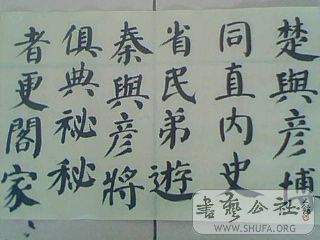 楚與彦埔
同直内史
省民弟遊
秦與彦將
俱典祕秘
者更閣家
書藝公社
WWW.SHUFA.ORG